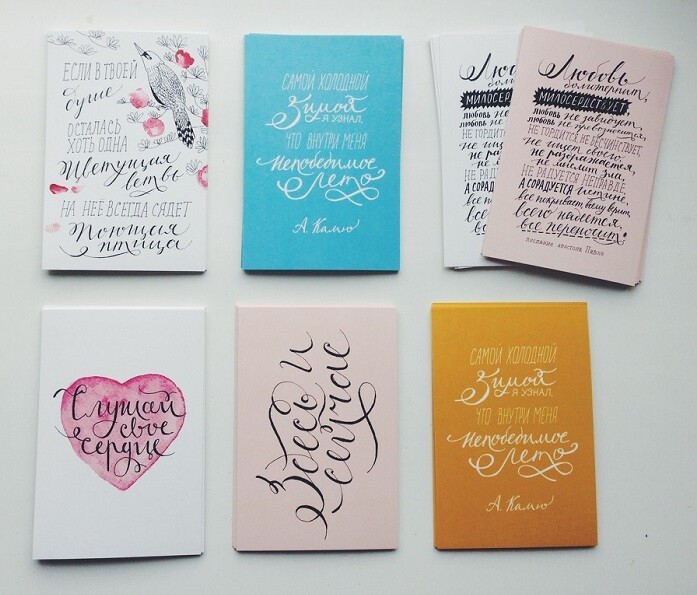 ЕСЛИ В ТВОЕЙ
душе
ОСТАЛАСЬ
ХОТЬ ОДНА
Цветущая
ветвь
НА НЕЕ ВСЕГДА СЯДЕТ
Поющая
птица
САМОЙ ХОЛОДНОЙ
Зимой
Я УЗНАЛ,
ЧТО ВНУТРИ МЕНЯ
Непобедимое
лето
А. Камю
Любовь
долготерпит,
МИЛОСЕРДСТВУЕТ,
любовь не завидует,
любовь не превозносится,
НЕ ГОРДИТСЯ, НЕ БЕСЧИНСТВУЕТ,
не ищет своего,
не раздражается,
не мыслит зла,
НЕ РАДУЕТСЯ НЕПРАВДЕ,
А СОРАДУЕТСЯ истине,
все покрывает, всему верит,
всего надеется,
все переносит.
послание апостола Павла
Слушай
свое
сердце
Здесь и
сейчас
САМОЙ ХОЛОДНОЙ
Зимой
Я УЗНАЛ,
ЧТО ВНУТРИ МЕНЯ
Непобедимое
лето
А. Камю